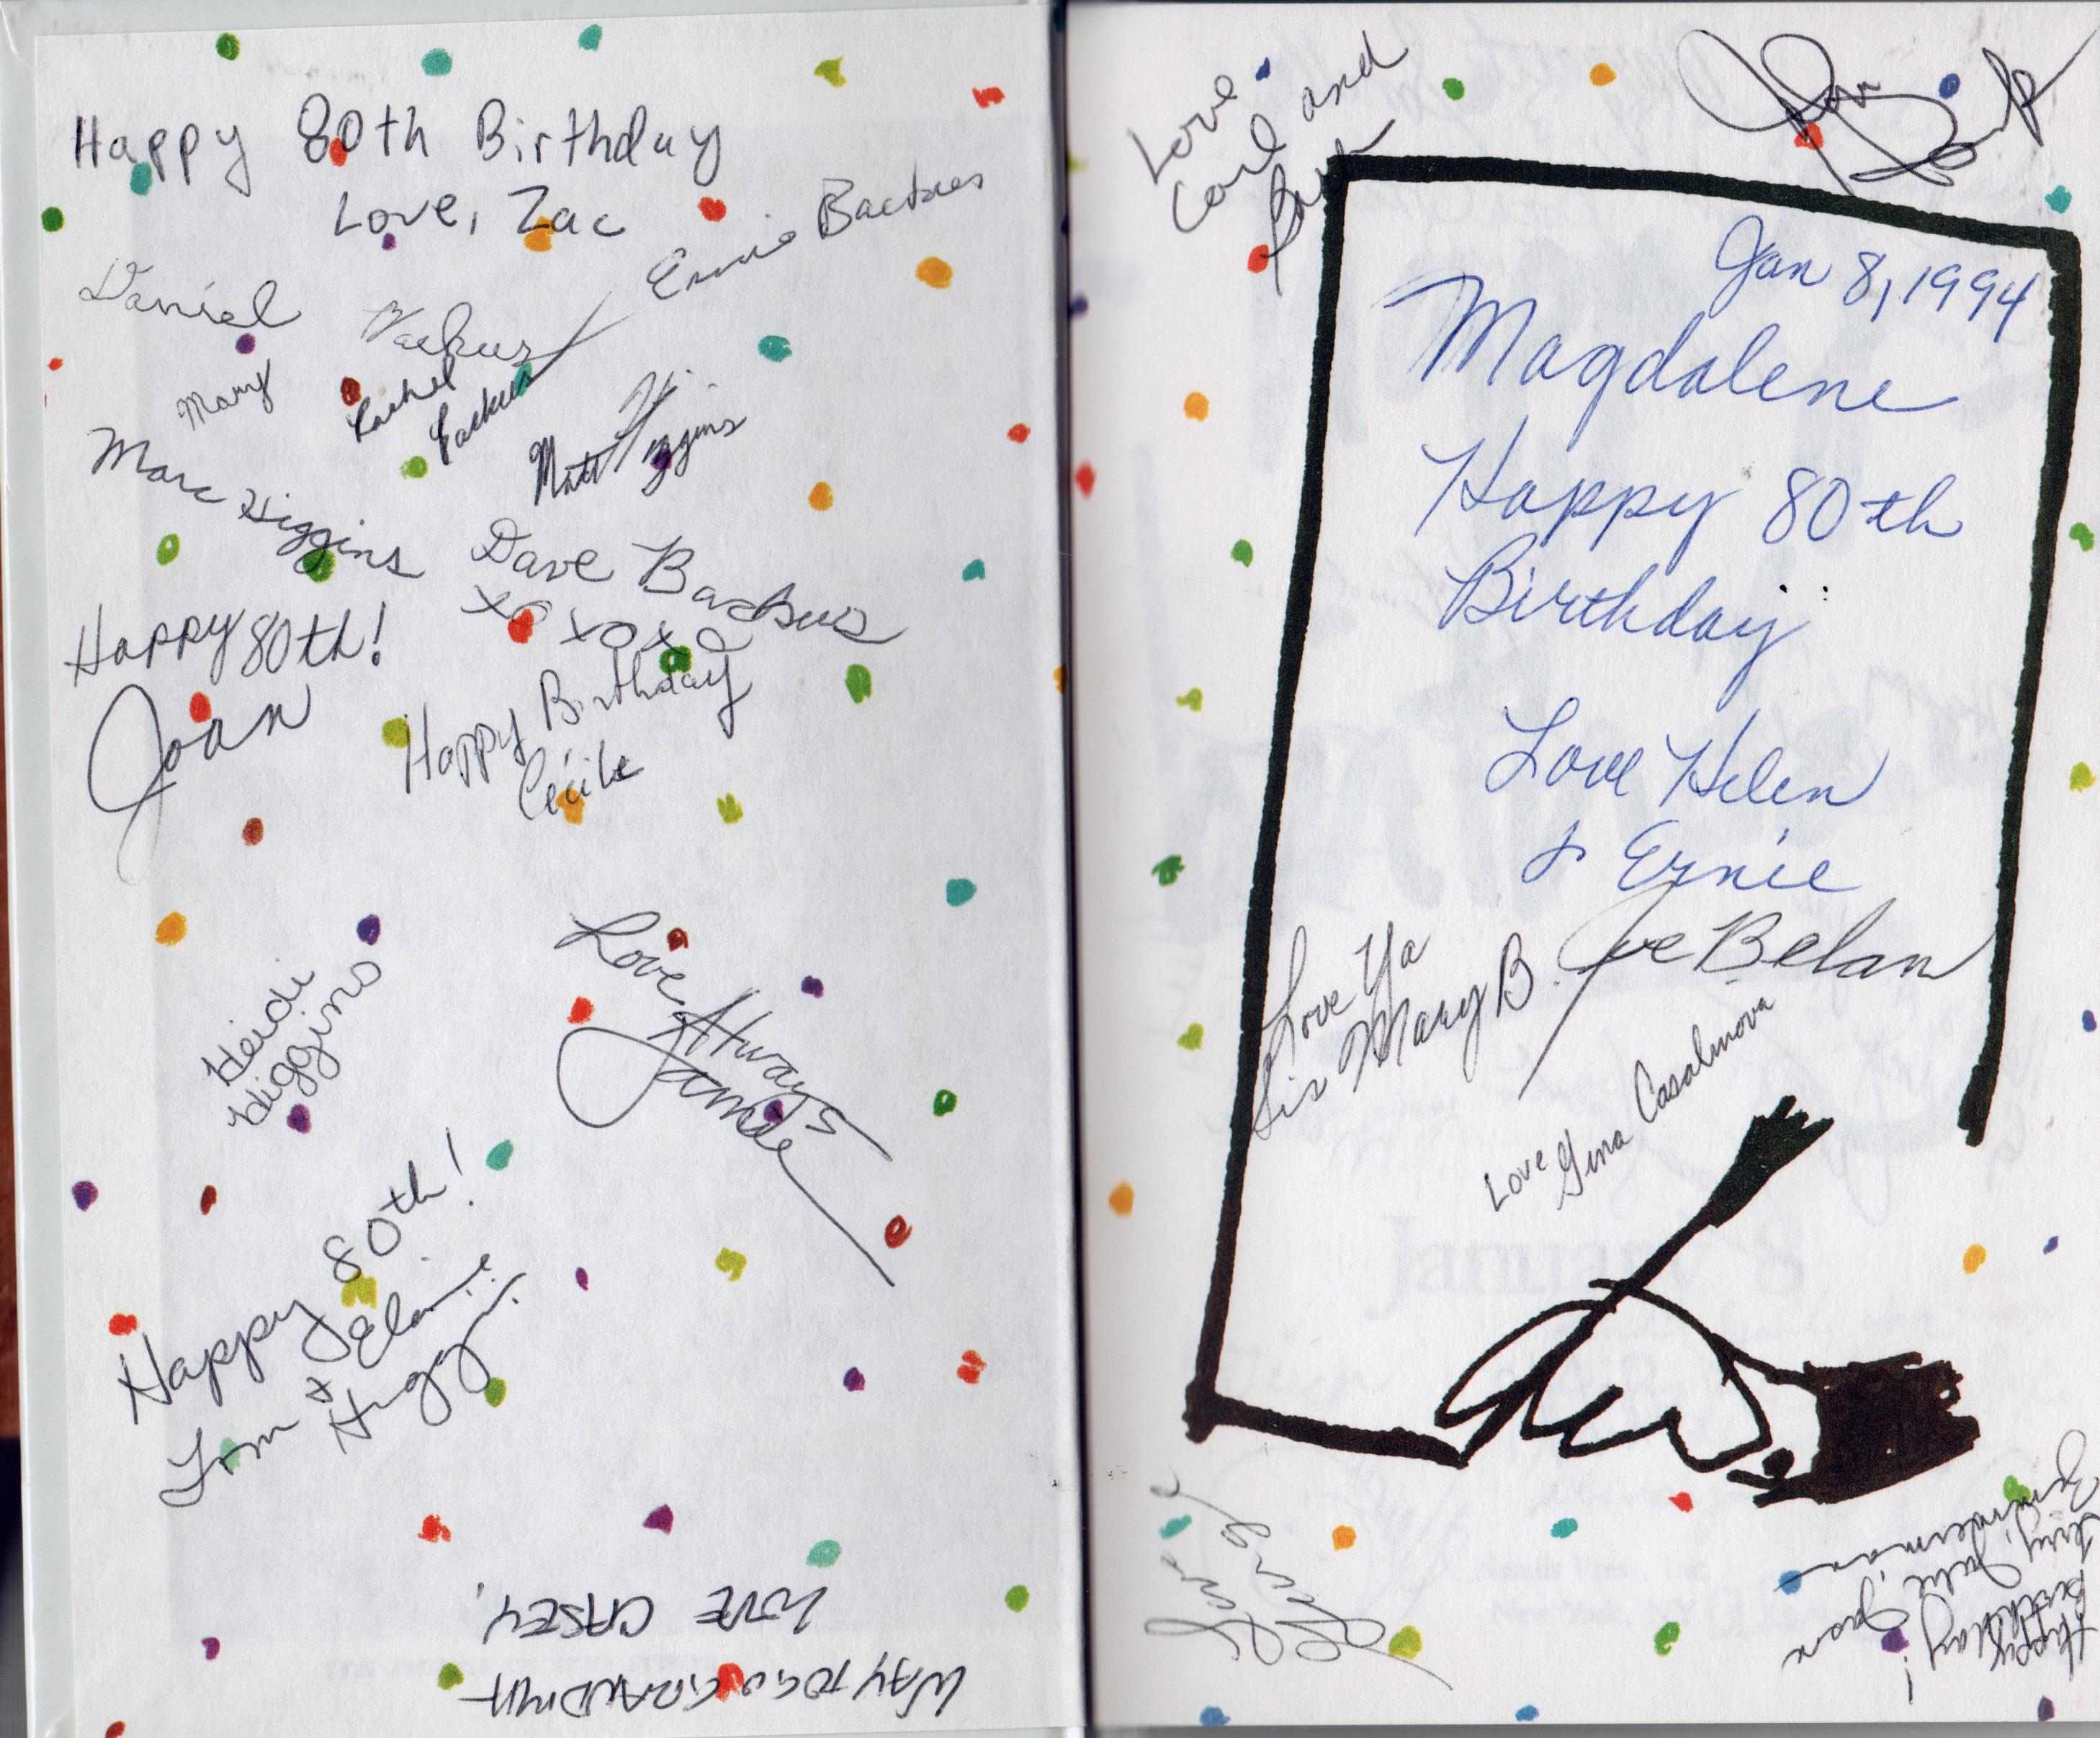 Happy 80th Birthday
Love, Zac
Ernie Backus
Daniel Backus
Mary
Rachel
Backus
Matt Higgins
Marc Higgins
Dave Backus
xo xox
Happy 80th!
Joan
Happy Birthday
Cécile
Heidi
Higgins
Love Always
Jamie
Happy 80th!
Tom & Elaine
Higgins
WAY TO GO GRANDMA
LOVE CASEY,
Love
Carl and
Jan 8, 1994
Magdalene
Happy 80th
Birthday
Love Helen
& Ernie
Love Ya
Sis Mary B.
Joe Belan
Love Gina Casalinova
January 8
Love
George
Happy
Birthday!
Jerry, Julie, Joan
Zimmerman